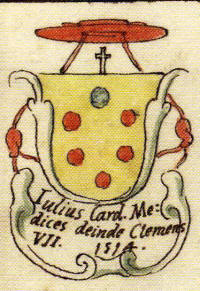 Iulius Card. Me=
dices deinde Clemens
VII. 1514.